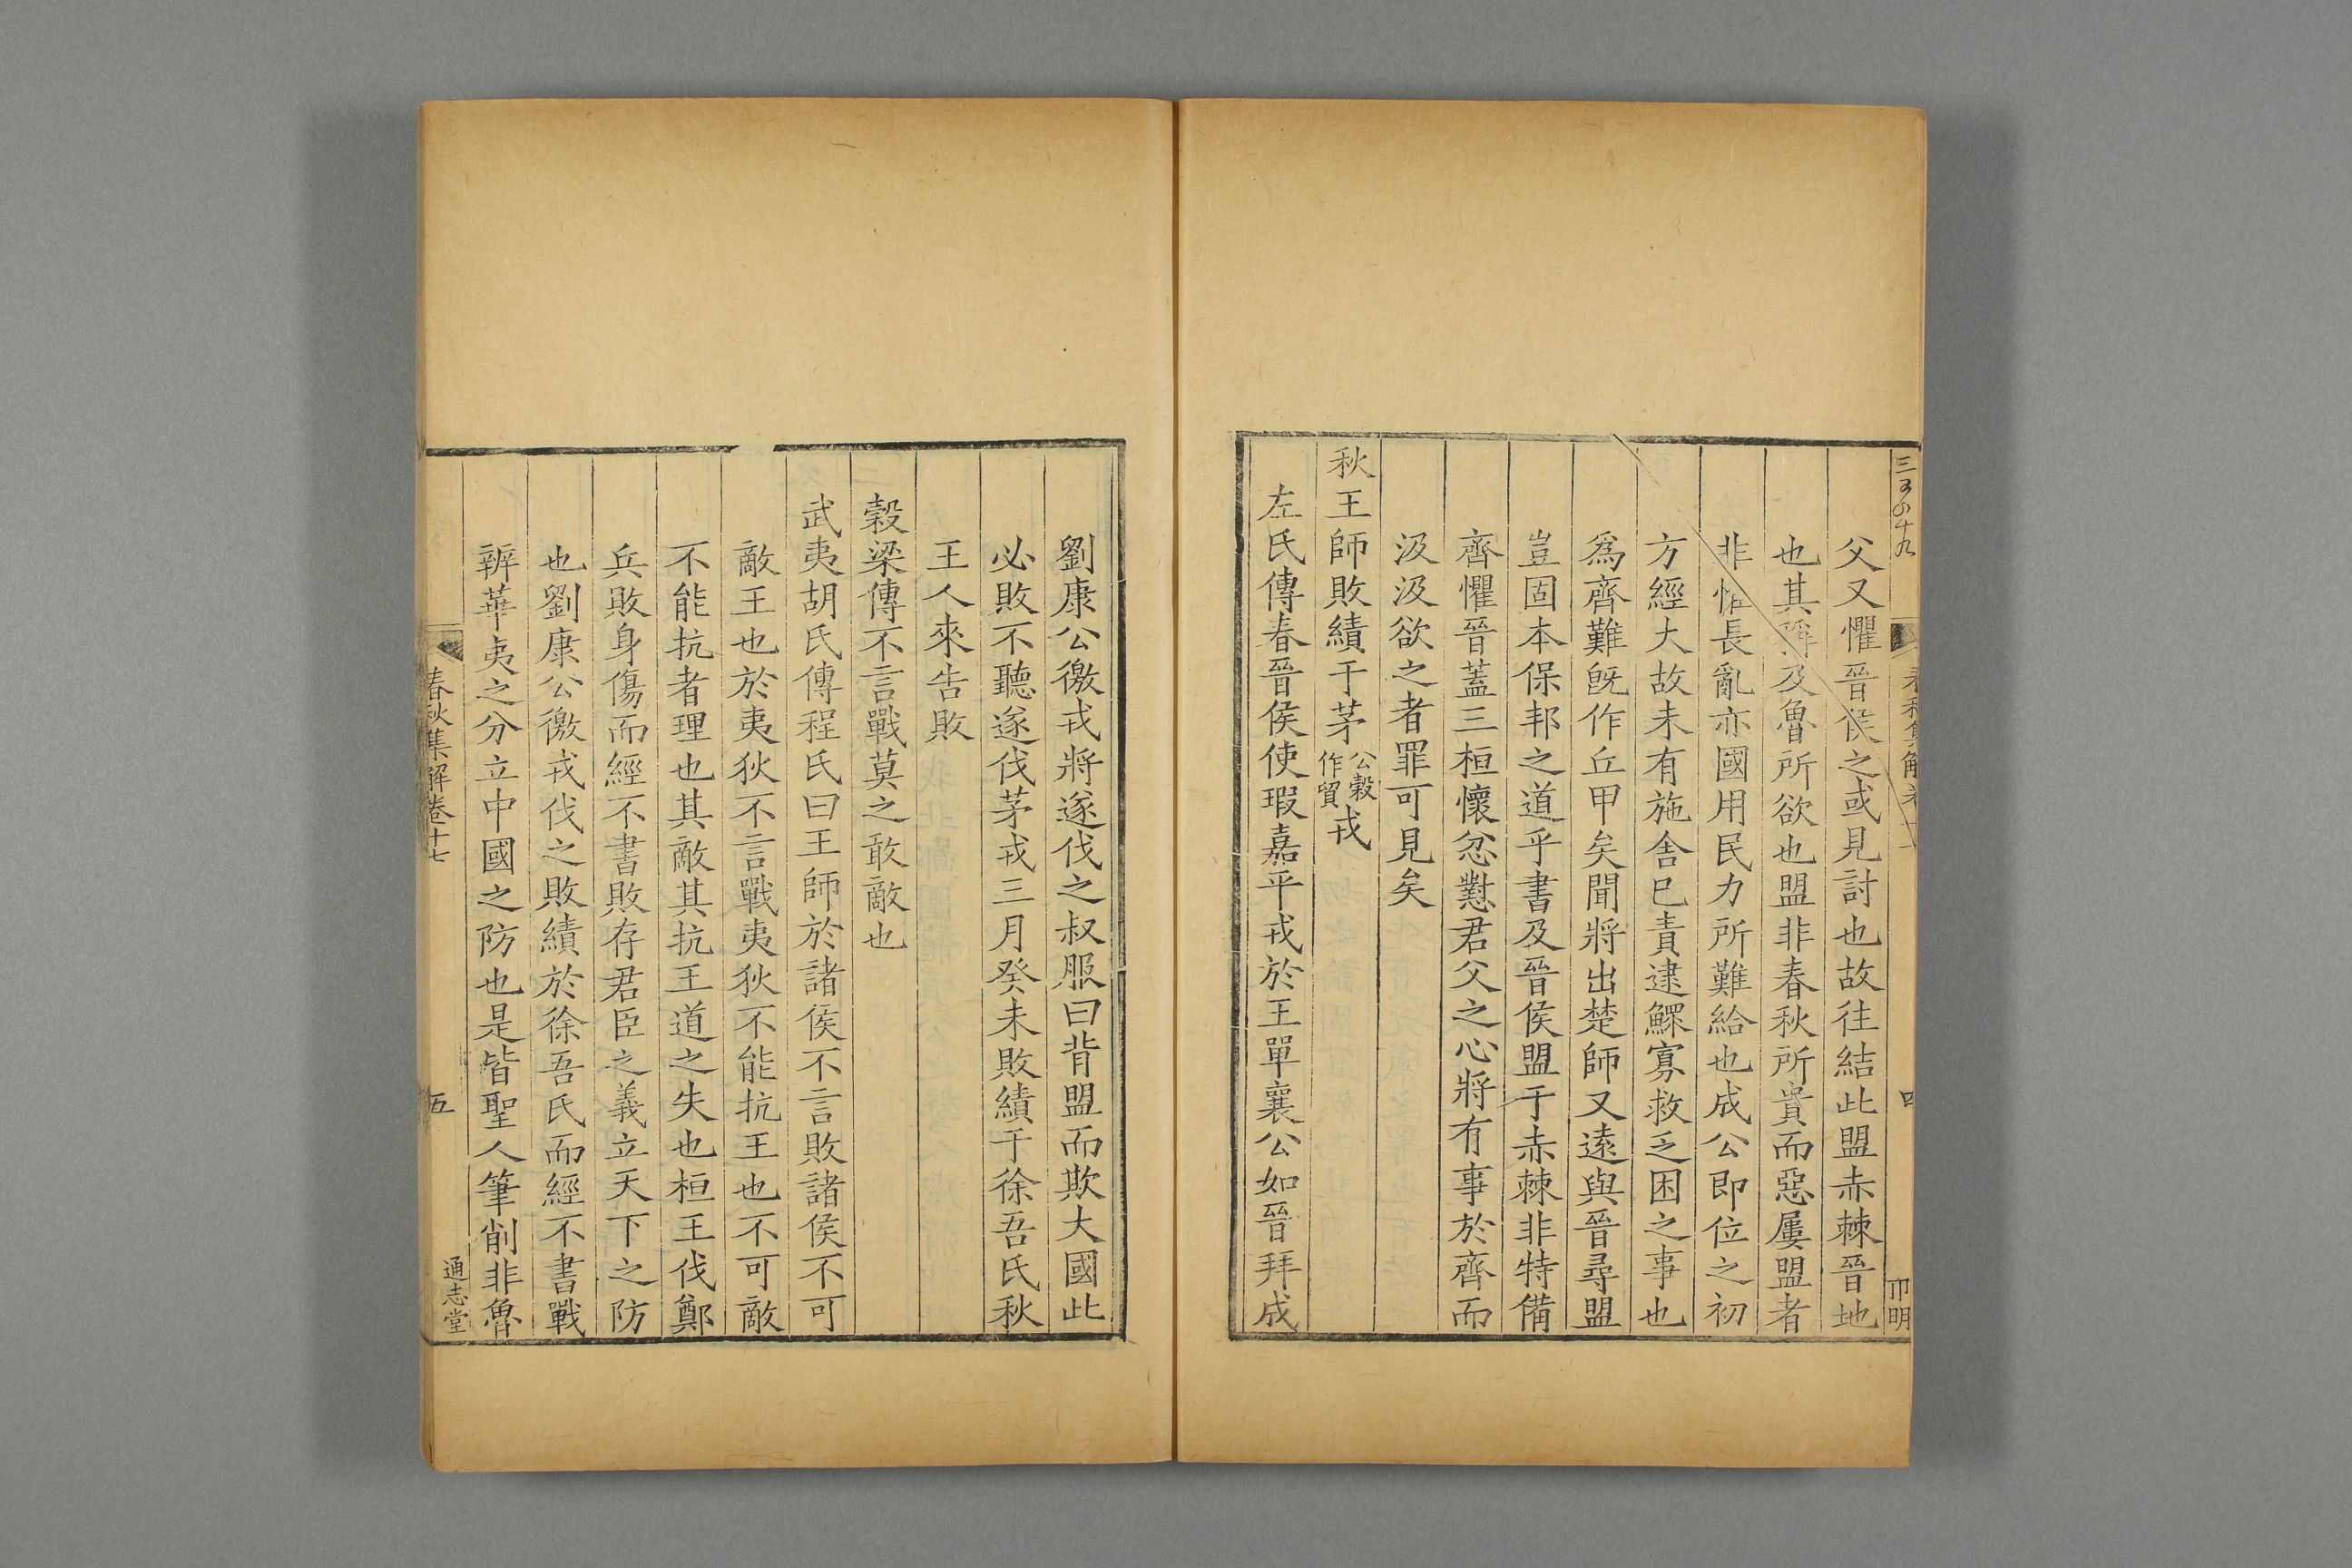 父又懼晉侯之或見討也故往結此盟赤棘晉地
也其稱及魯所欲也盟非春秋所貴而惡屢盟者
非怙長亂亦國用民力所難給也成公即位之初
方經大故未有施舍已責逮鰥寡救乏困之事也
爲齊難旣作丘甲矣聞將出楚師又遠與晉尋盟
豈固本保邦之道乎書及晉侯盟于赤棘非特備
齊懼晉蓋三桓懷忿懟君父之心將有事於齊而
汲汲欲之者罪可見矣
秋王師敗績于茅公穀作貿戎
左氏傳春晉侯使瑕嘉平戎於王單襄公如晉拜成
劉康公徼戎將遂伐之叔服曰背盟而欺大國此
必敗不聽遂伐茅戎三月癸未敗績于徐吾氏秋
王人來告敗
穀梁傳不言戰莫之敢敵也
武夷胡氏傳程氏曰王師於諸侯不言敗諸侯不可
敵王也於夷狄不言戰夷狄不能抗王也不可敵
不能抗者理也其敵其抗王道之失也桓王伐鄭
兵敗身傷而經不書敗存君臣之義立天下之防
也劉康公徼戎伐之敗績於徐吾氏而經不書戰
辨華夷之分立中國之防也是皆聖人筆削非魯
春秋集解卷十七
五
通志堂